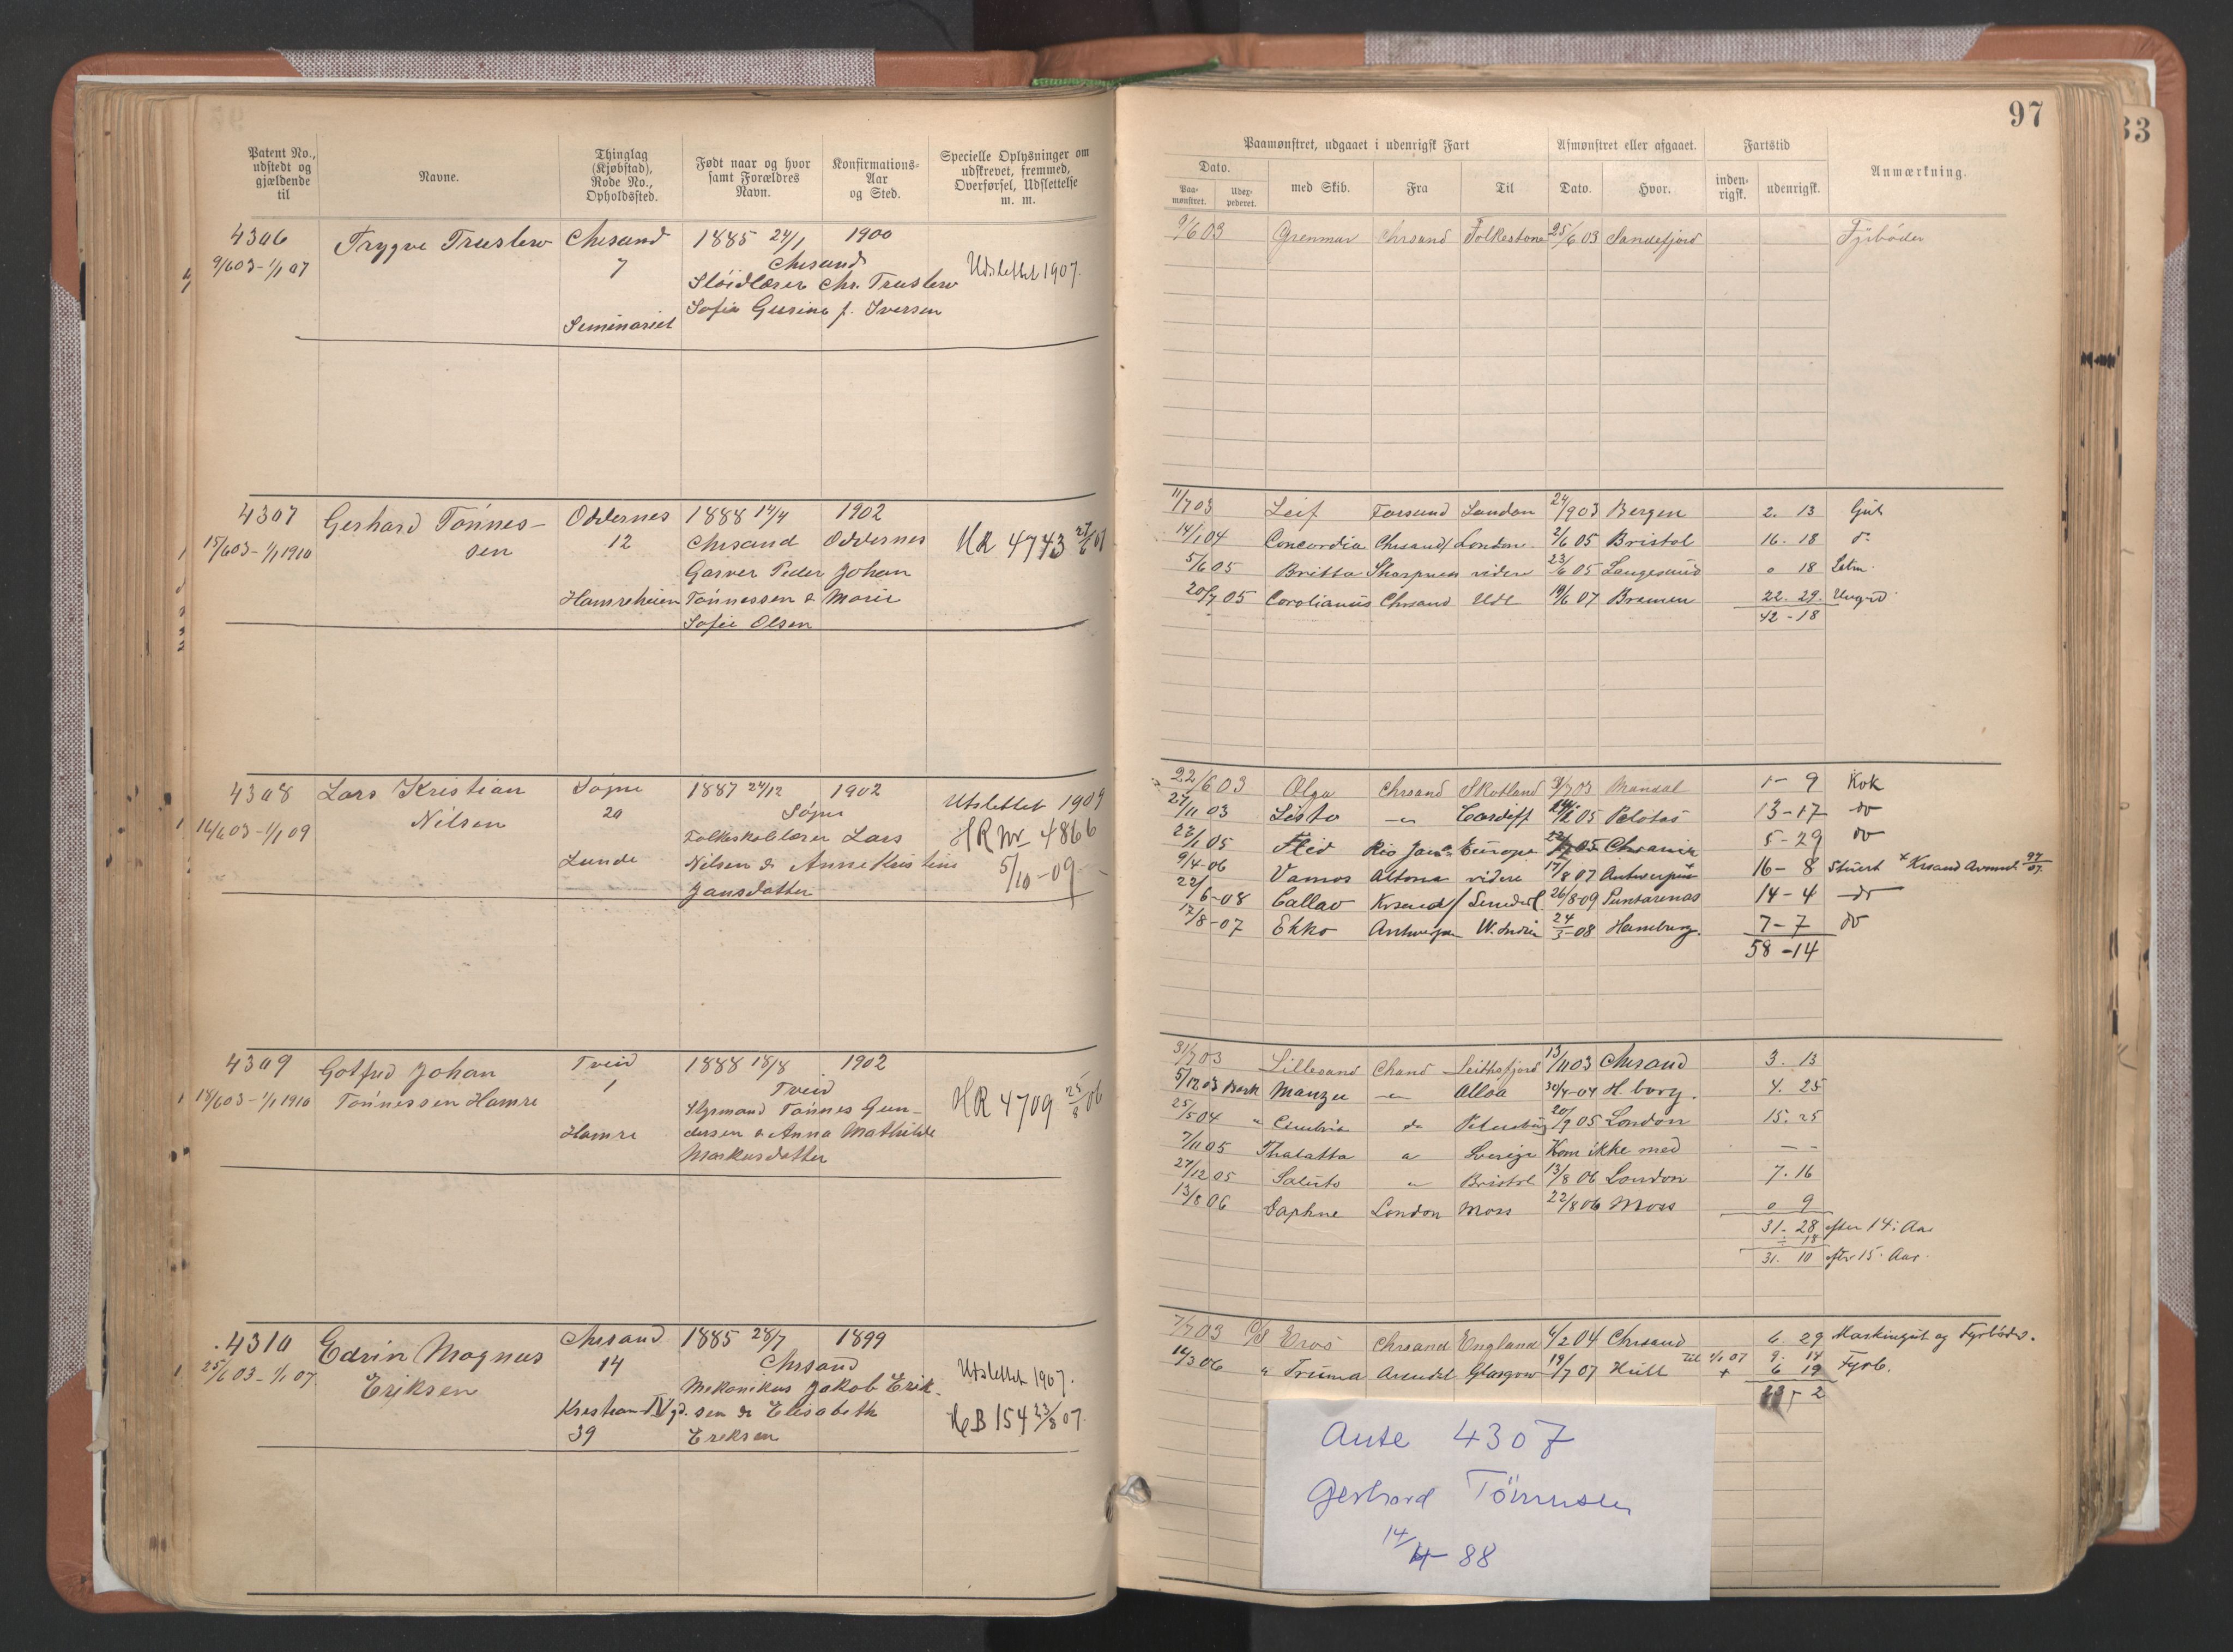 97
33
Patent No., udstedt og gjældende til
Navne.
Thinglag (Kjøbstad), Rode No., Opholdssted.
Født naar og hvor samt Forældres Navn.
Konfirmations-Aar og Sted.
Specielle Oplysninger om udskrevet, fremmed, Overførsel, Udslettelse m. m.
Paamønstret, udgaaet i udenrigsk Fart
Afmønstret eller afgaaet.
Fartstid
Anmærkning.
Dato.
Paa-mønstret.
Udex-pederet.
med Skib.
Fra
Til
Dato.
Hvor.
inden-rigsk.
udenrigsk.
4306 Trygve Truslew Chrsand 1885 24/1 1900
9/6 03 - 1/1 07 7 Chrsand Udslettet 1907.
Sløidlærer Chr. Truslew
Seminariet Sofie Gurine f. Iversen
9/6 03 Grenmar Chrsand Folkestone 25/6 03 Sandefjord Fyrbøder
4307 Gerhard Tønnes- Oddernes 1888 14/4 1902
15/6 03 - 1/1 1910 sen 12 Chrsand Oddernes HR 4743 27/6 07
Garver Peder Johan
Hamreheien Tønnessen & Marie
Sofie Olsen
11/7 03 Leif Farsund London 24/9 03 Bergen 2. 13 Gut
14/1 04 Concordia Chrsand London 2/6 05 Bristol 16. 18 do
5/6 05 Britta Sharpness videre 23/6 05 Langesund 0 18 Letm.
20/7 05 Carolianus Chrsand Udl 19/6 07 Bremen 22. 29. Ungd.
42 - 18
4308 Lars Kristian Søgne 1887 24/12 1902 Utslettet 1909
16/6 03 - 1/1 09 Nilsen 20 Søgne HR Nr 4866
Folkeskolelærer Lars 5/10 - 09
Lunde Nilsen & Anne Kristine
Jansdatter
22/6 03 Olga Chrsand Skotland 31/7 03 Mandal 1 - 9 Kok
27/11 03 Lista -"- Cardiff 05 Pelotas 13 - 17 do
23/1 05 Rio Jan. Europa 05 Chrania 5 - 29 do
9/4 - 06 Vamos Altona videre 17/8 07 Antwerpen 16 - 8 Stuert
22/6 - 08 Callao Krsand 26/8 - 09 Puntarenas 14 - 4 do
17/8 - 07 Ekko Antwerpen W. Indien 24/3 - 08 Hamburg. 7 - 7 do
58 - 14
4309 Gotfred Johan Tveid 1888 18/8 1902
18/6 03 - 1/1 1910 Tønnessen Hamre 1 Tveid HR 4709 25/8 06
Styrmand Tønnes Gun-
Hamre dersen & Anna Mathilde
Markusdatter
31/7 03 Lillesand Chsand Leithsfjord 13/11 03 Chrsand 3. 13
5/12 03 Bark Manzu -"- Alloa 30/4 - 04 H.borg. 4. 25
25/5 04 " Cimbria do Petersburg 20/9 05 London 15. 25
7/11 05 Thalatta " Sverige Kom ikke med - -
27/12 05 Saluto " Bristol 13/8 06 London 7. 16
13/8 06 Daphne London Moss 22/8 06 Moss 0 9
31. 28 efter 14. Aar
18
31. 10 efter 15. Aar.
4310 Edvin Magnus Chrsand 1885 28/7 1899
25/6 03 - 1/1 07 Eriksen 14 Chrsand Utslettet 1907.
Mekanikus Jakob Erik-
Kristian IV gd. sen & Elisabeth HcB 154 23/8 07.
39 Eriksen
7/7 03 D/S Eros Chrsand England 4/2 04 Chrsand 6. 29 Maskingut og Fyrbøder.
16/3 06 " Truma Arendal Glasgow 19/7 07 Hull til 1/1 07 9. 14 Fyrb.
+ 6 19
Aute 4307
Gerhard Tönnusen
14/4 88